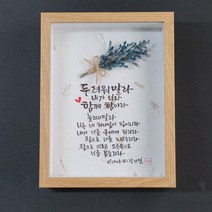 두려워말라
내가 너와
함께 함이라
놀라지말라
나는 네 하나님이 됨이라
내가 너를 굳세게 하리라
참으로 너를 도와주리라
참으로 나의 의로운 오른손으로
너를 붙들리라